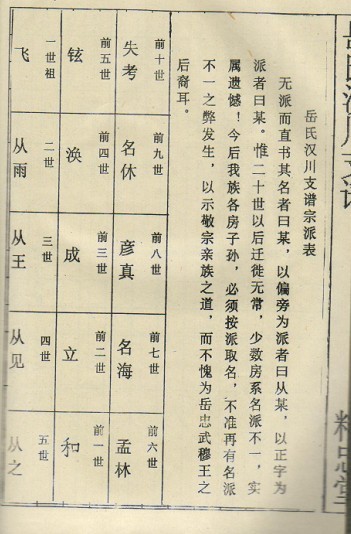 岳氏汉川支谱
精忠堂
岳氏汉川支谱宗派表
无派而直书其名者曰某，以偏旁为派者曰从某，以正字为
派者曰某。惟二十世以后迁徙无常，少数房系名派不一，实
属遗憾！今后我族各房子孙，必须按派取名，不准再有名派
不一之弊发生，以示敬宗亲族之道，而不愧为岳忠武穆王之
后裔耳。
前十世
失考
前九世
名休
前八世
彦真
前七世
名海
前六世
孟林
前五世
铉
前四世
涣
前三世
成
前二世
立
前一世
和
一世祖
飞
二世
从雨
三世
从王
四世
从见
五世
从之